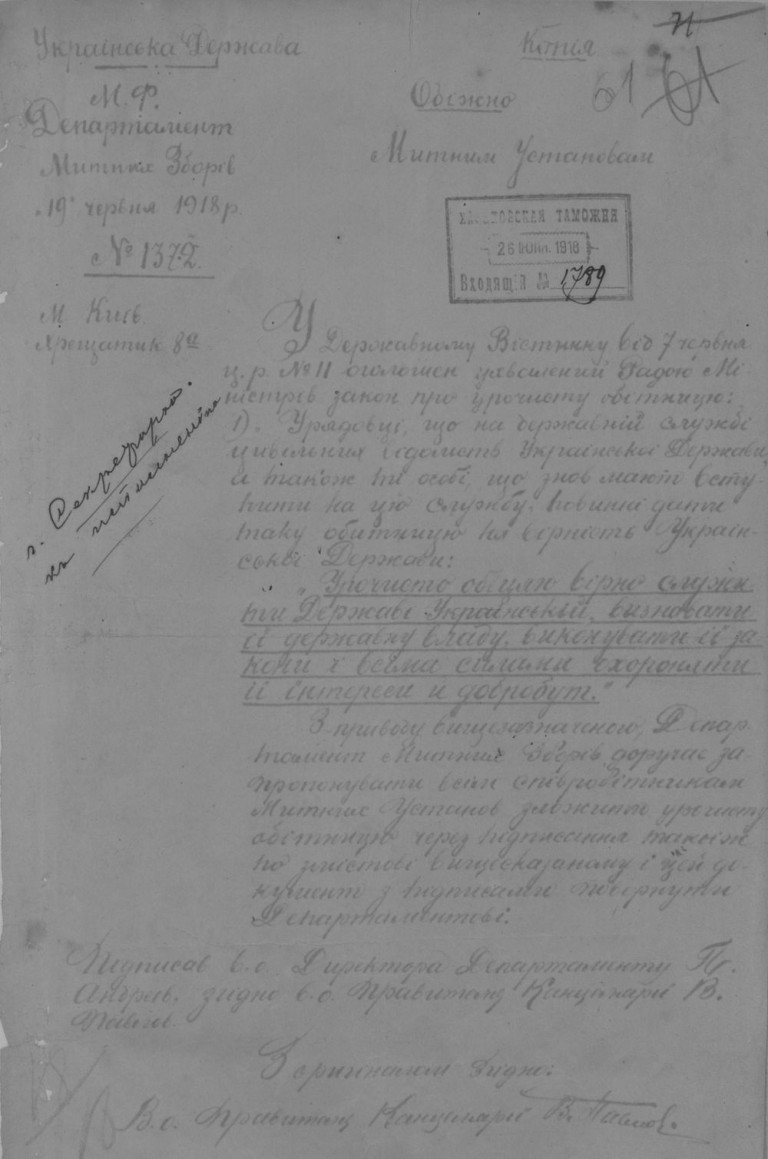 Українська Держава
М. Ф.
Департамент
Митних Зборів
„19" червня 1918 р.
№ 1372.
М. Київ
Хрещатик 8а
Копія
61
Обіжно
Митним Установам
ТАМОЖНЯ
26 ІЮН. 1918
Входящій № 1789
У Державному Вістнику від 7 червня
ц. р. № 11 оголошен ухвалений Радою Мі-
ністрів закон про урочисту обітницю:
1). Урядовці, що на державній службі
цивільних відомств Української Держави,
а також ті особі, що знов мають всту-
пити на цю службу, повинні дати
таку обітницю на вірність Україн-
ської Держави:
„Урочисто обіцяю вірно служи-
ти Державі Українській, визнавати
її державну владу, виконувати її за-
кони і всіма силами охороняти
її інтереси й добробут."
З приводу вищезазначеного, Депар-
тамент Митних Зборів доручає за-
пропонувати всім співробітникам
Митних Установ зложити урочисту
обітницю через підписання такої ж
по змістові вищесказаному і цей до-
кумент з підписами повернути
Департаментові.
Підписав в. о. Директора Департаменту
згідно в. о. Правитель Канцелярії В.
Павлов
З оригіналом згідно:
В. о. Правитель Канцелярії В. Павлов.